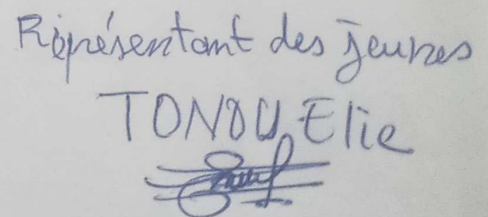 Représentant des jeunes
TONOU Elie